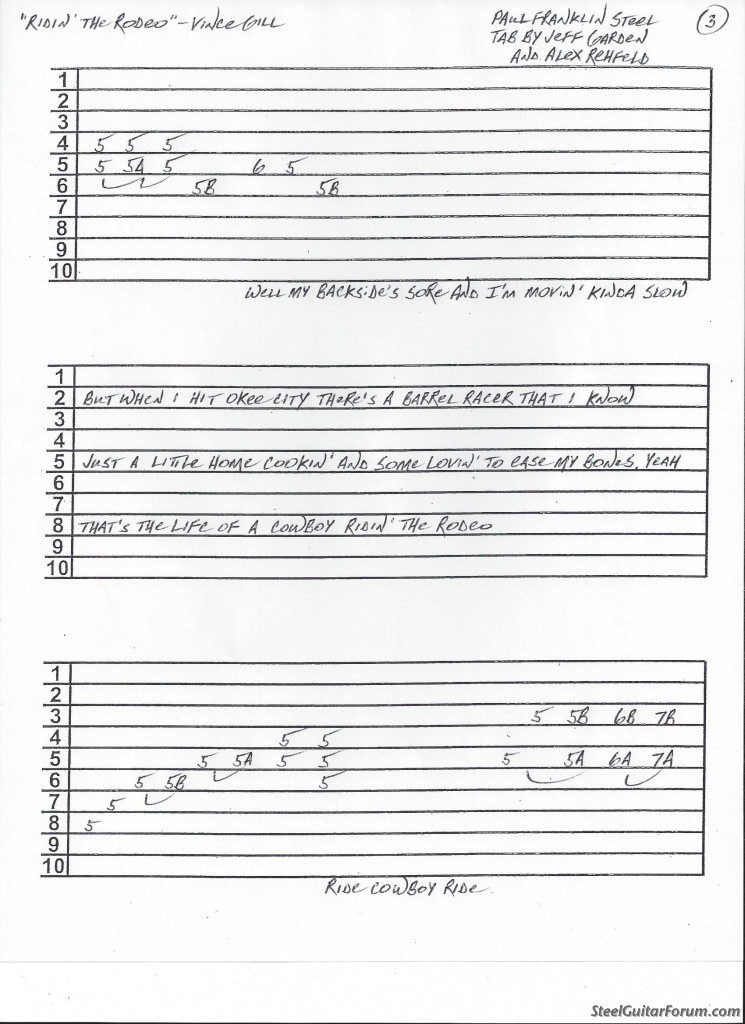 "Ridin' the Rodeo" - Vince Gill
Paul Franklin Steel
Tab by Jeff Garden
and Alex Rehfeld
3
1
2
3
4 5 5 5
5 5 5A 5 6 5
6 5B 5B
7
8
9
10
Well my backside's sore and I'm movin' kinda slow
1
2 But when I hit Okee City there's a barrel racer that I know
3
4
5 Just a little home cookin' and some lovin' to ease my bones, yeah
6
7
8 That's the life of a cowboy ridin' the rodeo
9
10
1
2
3 5 5B 6B 7B
4 5 5
5 5 5A 5 5 5 5A 6A 7A
6 5 5B 5
7 5
8 5
9
10
Ride cowboy ride
SteelGuitarForum.com